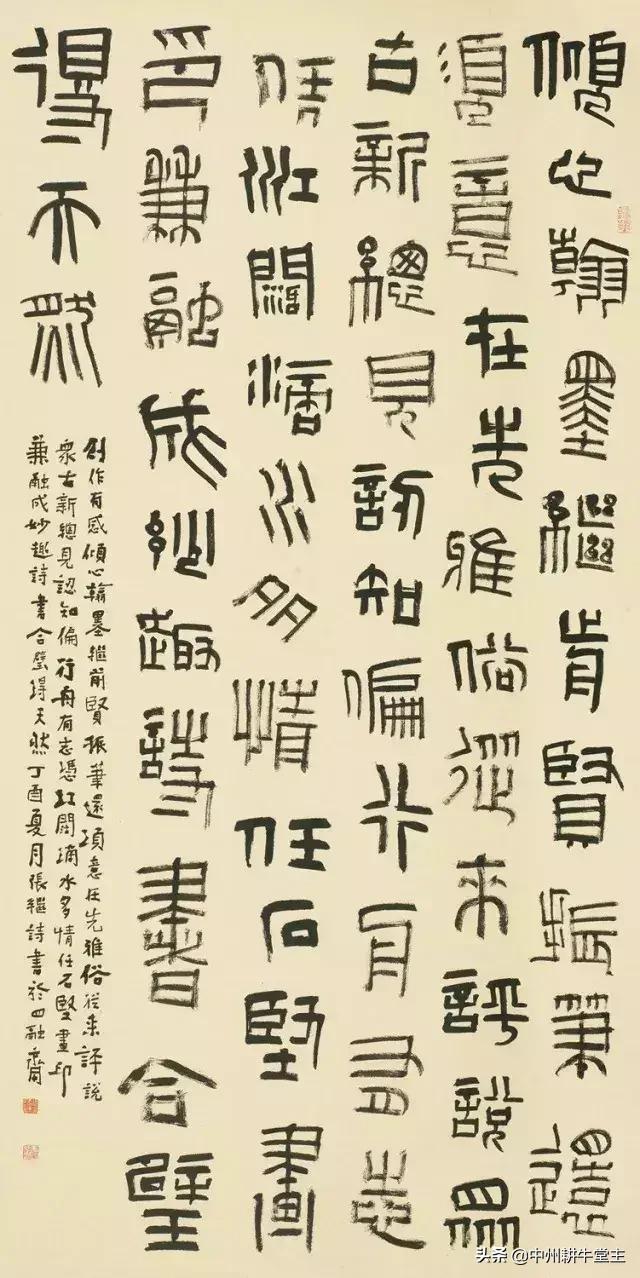 傾心翰墨繼前賢振筆還
須意在先雅俗從來評說眾
古新總見認知偏行舟有志
凭江闊滴水多情任石堅畫
印兼融成妙趣詩書合璧
得天然
創作有感傾心翰墨繼前賢振筆還須意在先雅俗從來評說
眾古新總見認知偏行舟有志憑江闊滴水多情任石堅畫印
兼融成妙趣詩書合璧得天然丁酉夏月張繼詩書於四融齋
头条 @中州耕牛堂主